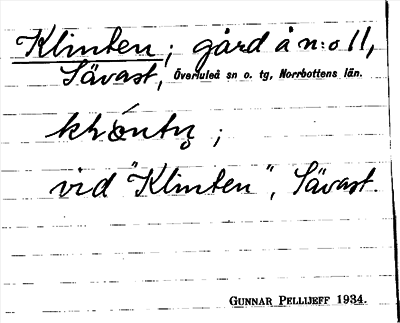 Klinten; gård å n:o 11,
Sävast, Överluleå sn o. tg, Norrbottens län.
;
vid "Klinten", Sävast.
GUNNAR PELLIJEFF 1934.